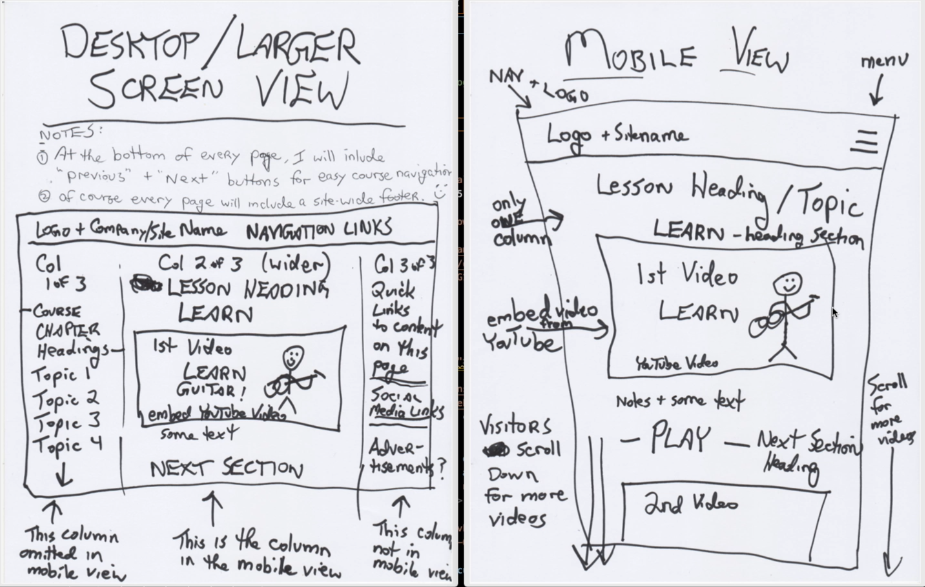 DESKTOP/LARGER
SCREEN VIEW
NOTES:
① At the bottom of every page, I will inlude
"previous" + "Next" buttons for easy course navigation
② of course every page will include a site-wide footer.
LOGO + Company/Site Name NAVIGATION LINKS
Col
1 of 3
COURSE
CHAPTER
Headings
Topic 1
Topic 2
Topic 3
Topic 4
Col 2 of 3 (wider)
LESSON HEADING
LEARN
1st Video
LEARN
GUITAR!
embed YouTube Video
some text
NEXT SECTION
Col 3 of 3
Quick
Links
to content
on this
page
Social
Media Links
Adver-
tisements?
This column
omitted in
mobile view
This is the column
in the mobile view
This colum
not in
mobile view
MOBILE VIEW
NAV + LOGO
menu
Logo + Sitename
Lesson Heading/Topic
only
ONE
column
LEARN - heading section
1st Video
LEARN
YouTube Video
embed video
from
YouTube
Notes + some text
Scroll
for
more
videos
VISITORS
Scroll
Down
for more
videos
- PLAY - Next Section
Heading
2nd Video